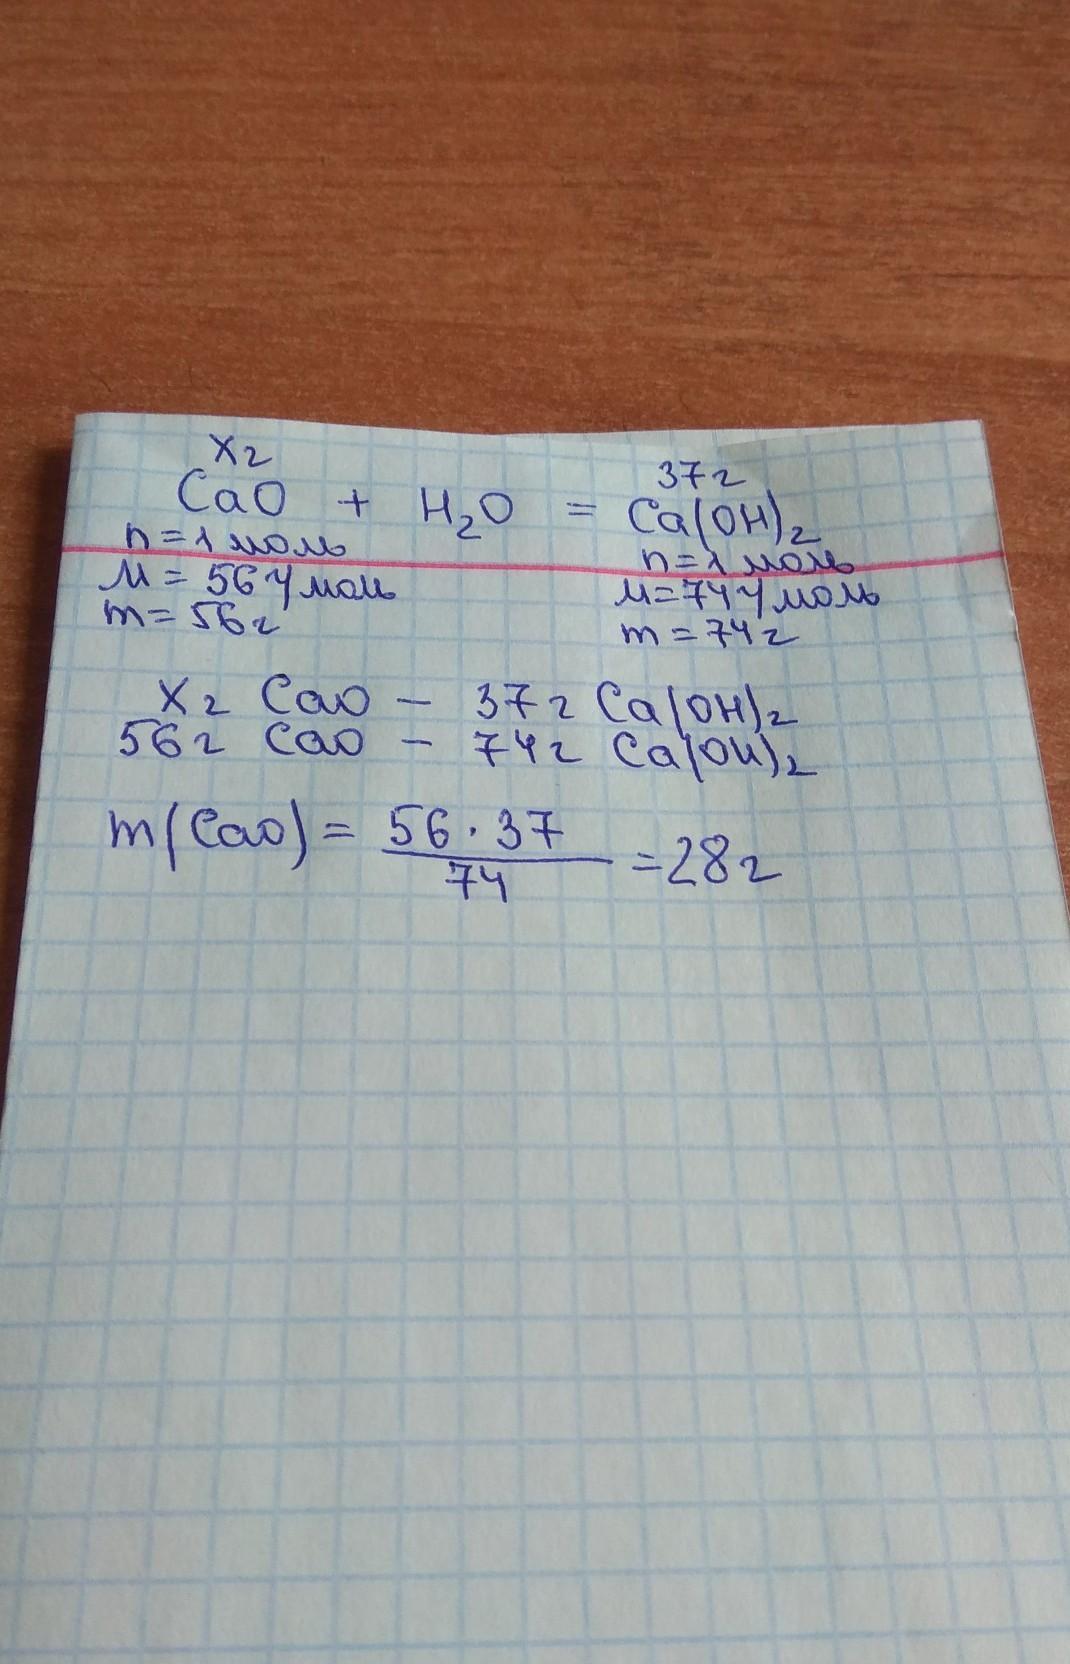 х г
37 г
CaO + H₂O = Ca(OH)₂
n = 1 моль
n = 1 моль
M = 56 г/моль
M = 74 г/моль
m = 56 г
m = 74 г
х г CaO – 37 г Ca(OH)₂
56 г CaO – 74 г Ca(OH)₂
m(CaO) = 56 · 37 / 74 = 28 г